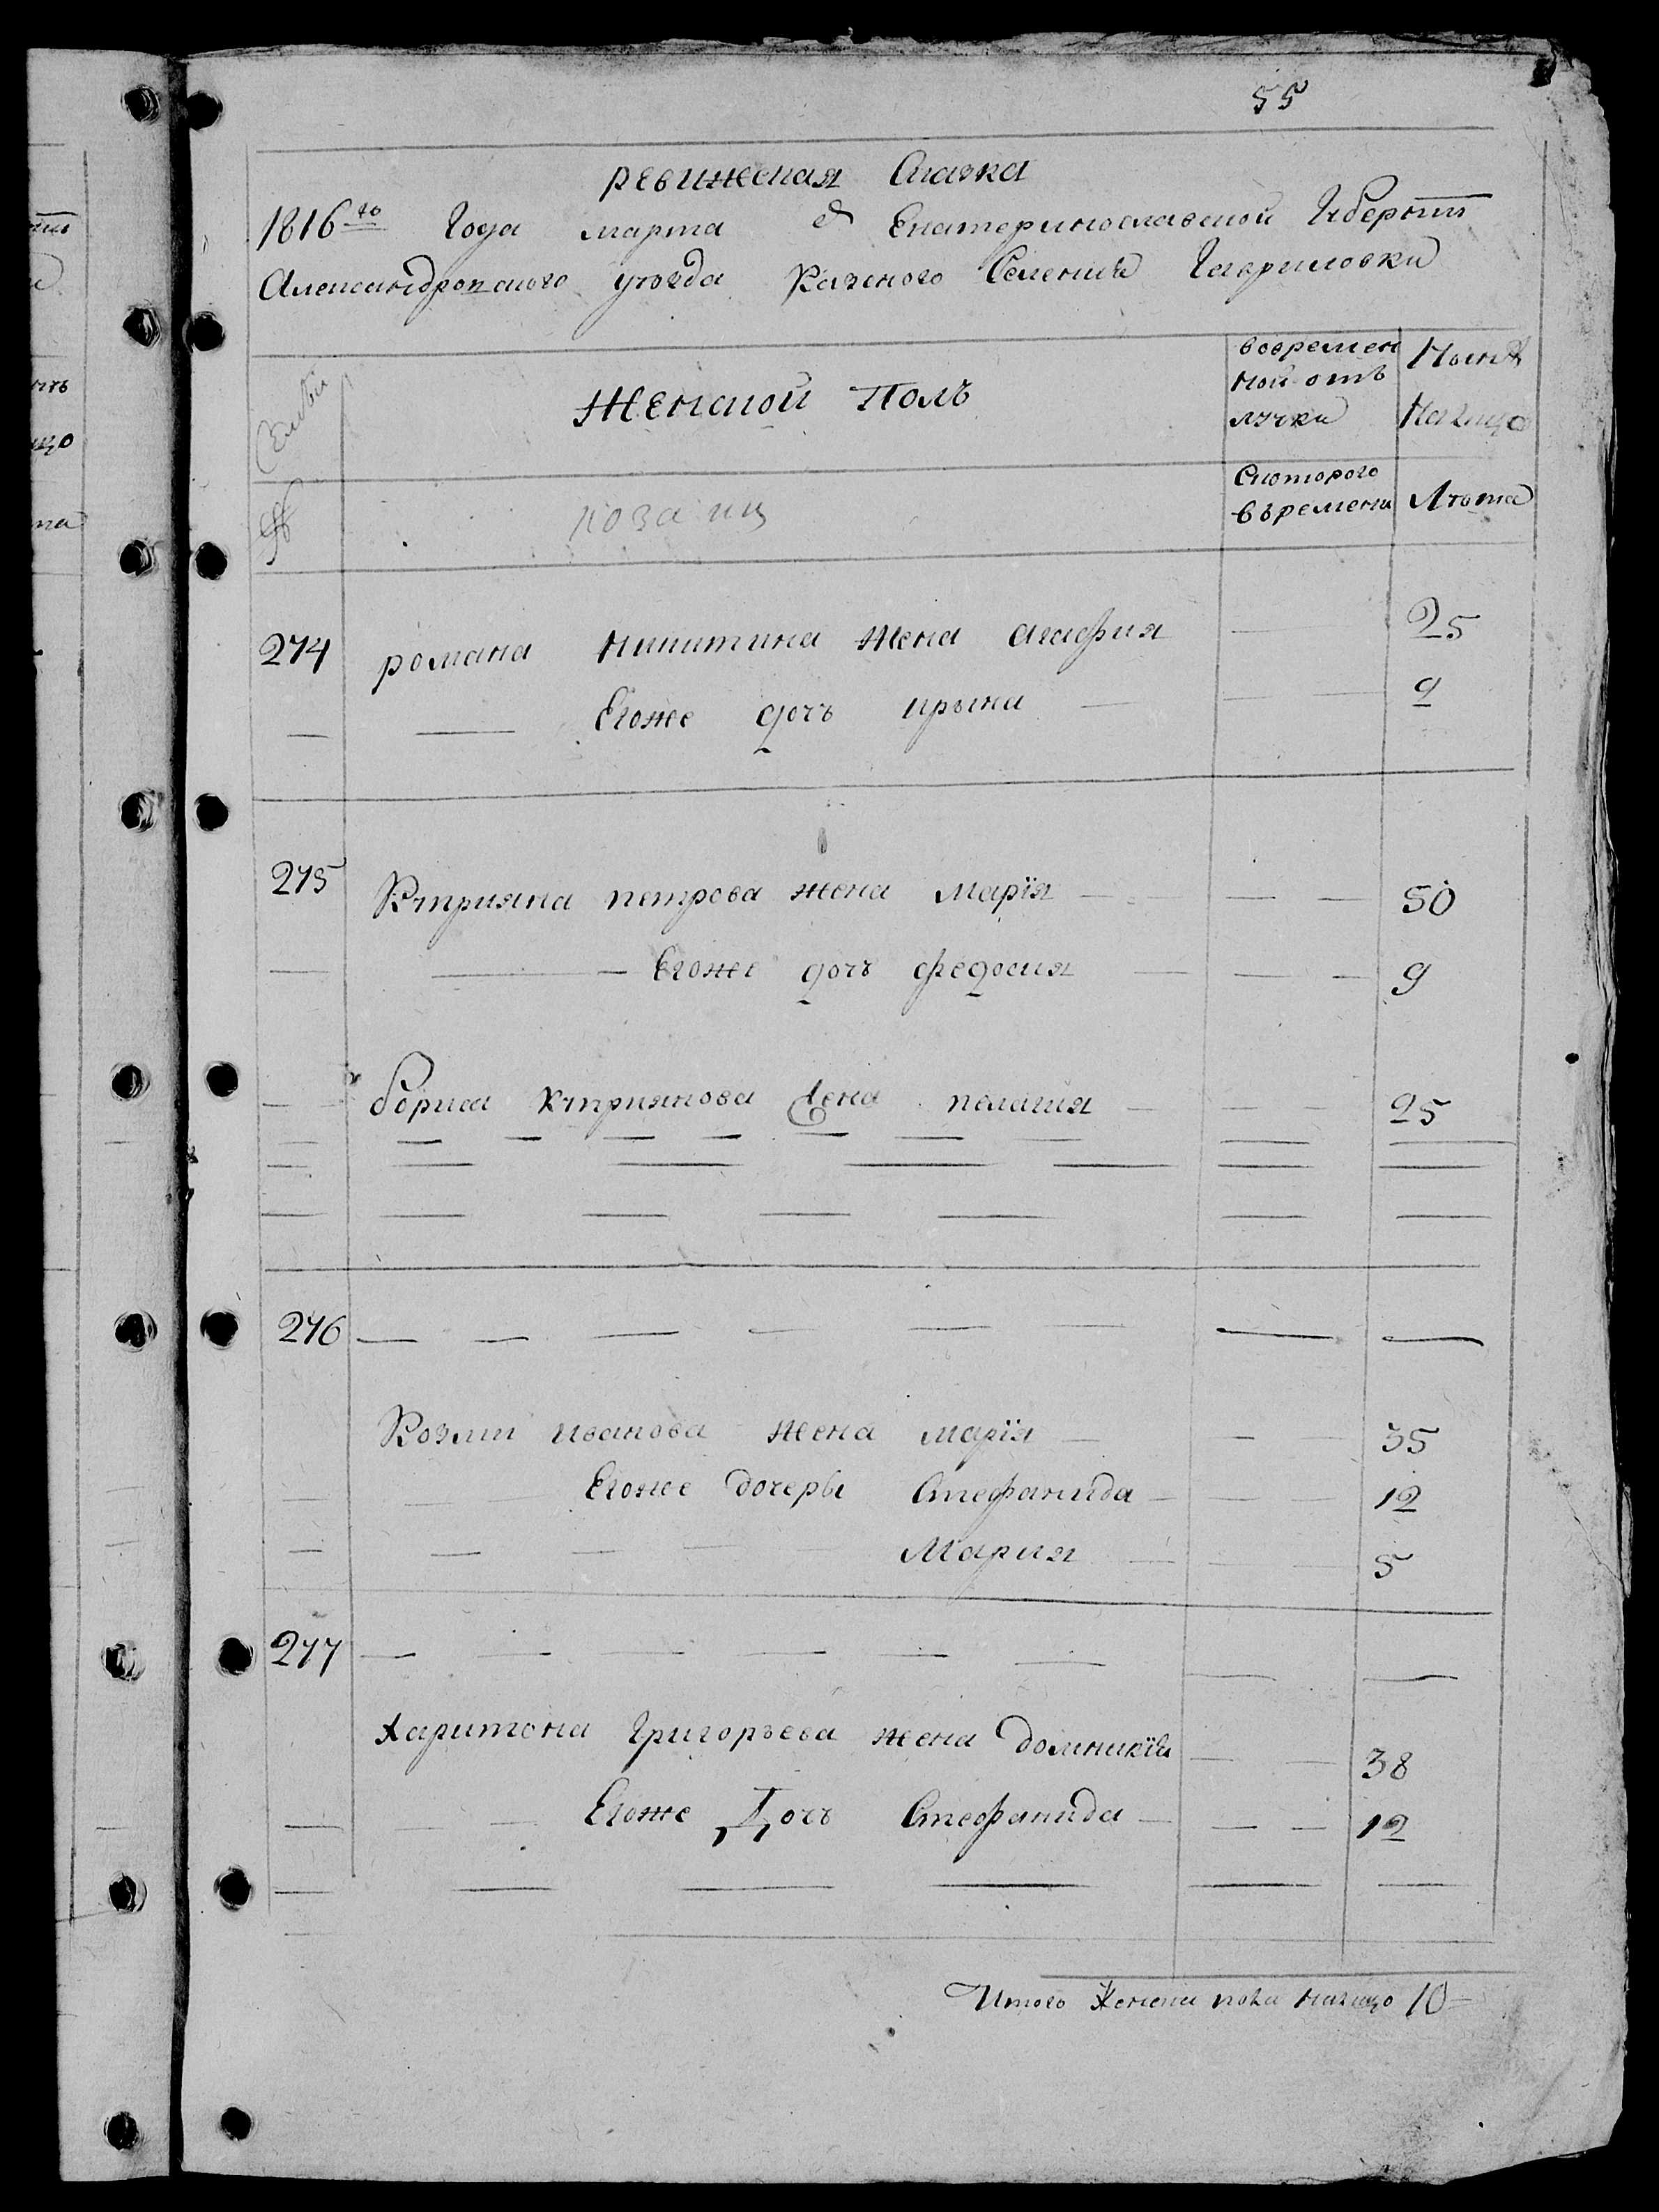 55
ревижская Сказка
1816го Года марта Екатеринославской Губернии
Александровского уѣзда Казенного Селения Гавриловки
Семьи
Женской Полъ
вовремен
ной отъ
лучки
Нынѣ
Налицо
№
козаки
Скоторого
времени
Лѣта
274 романа Никитина жена агафия 25
Егоже дочь ирына 9
275 Куприяна петрова жена Марїя 50
Егоже дочь федосия 9
бориса Куприянова жена пелагия 25
276
Козми иванова жена марїя 35
Егоже дочеры Стефанида 12
Мария 5
277
Харитона Григорьева жена домникїя 38
Егоже Дочь Стефанида 12
Итого Женска пола налицо 10